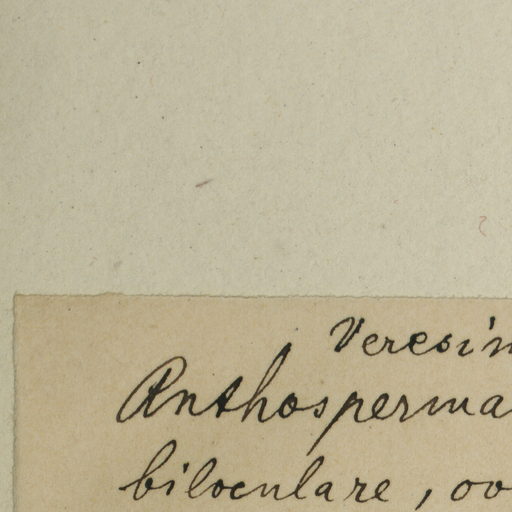 Veresi'n
Anthosperma
biloculare, ov